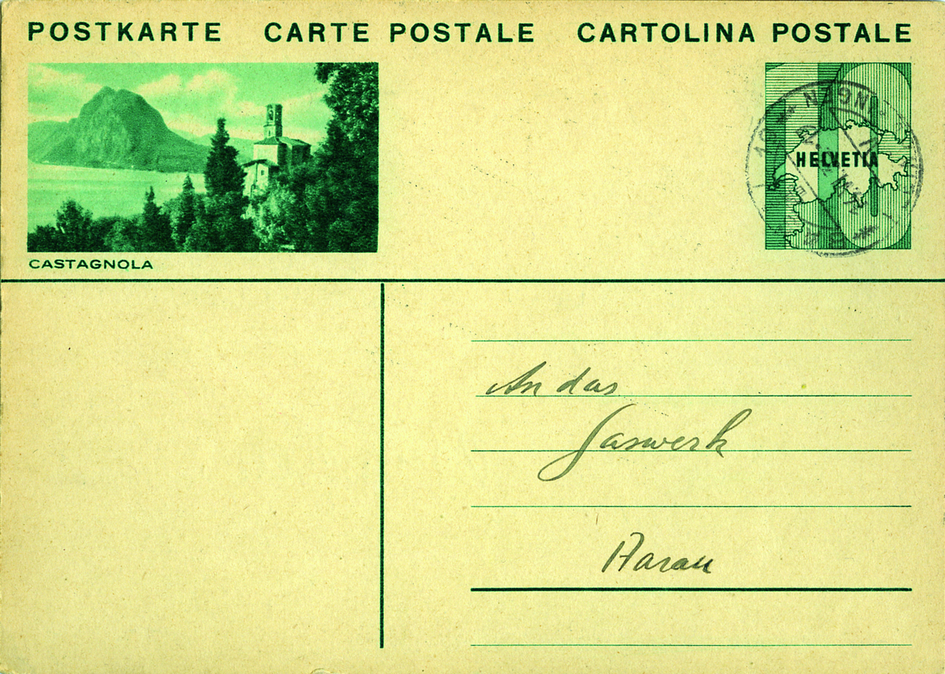 POSTKARTE CARTE POSTALE CARTOLINA POSTALE
HELVETIA
CASTAGNOLA
An das
Gaswerk
Aarau